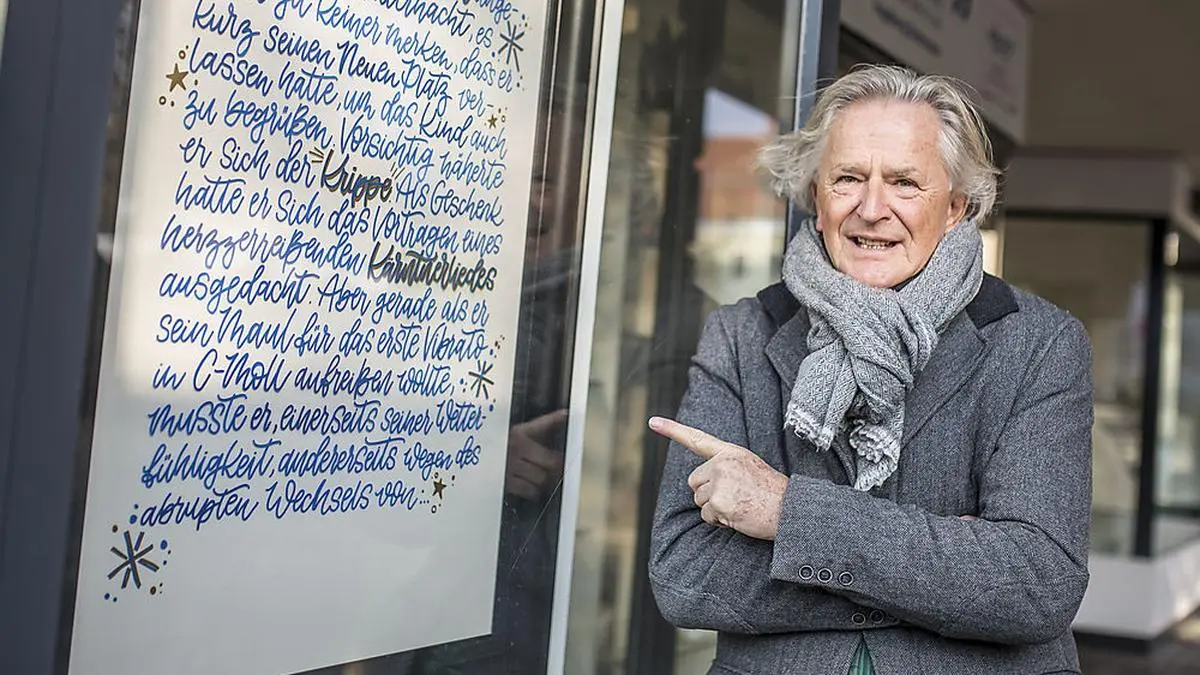 kurz seinen Neuen Platz ver-
lassen hatte, um das Kind auch
zu begrüßen. Vorsichtig näherte
er sich der "Krippe". Als Geschenk
hatte er sich das Vortragen eines
herzzerreißenden Kärntnerliedes
ausgedacht. Aber gerade als er
sein Maul für das erste Vibrato
in C-Moll aufreißen wollte,
musste er, einerseits seiner Wetter-
fühligkeit, andererseits wegen des
abrupten Wechsels von...